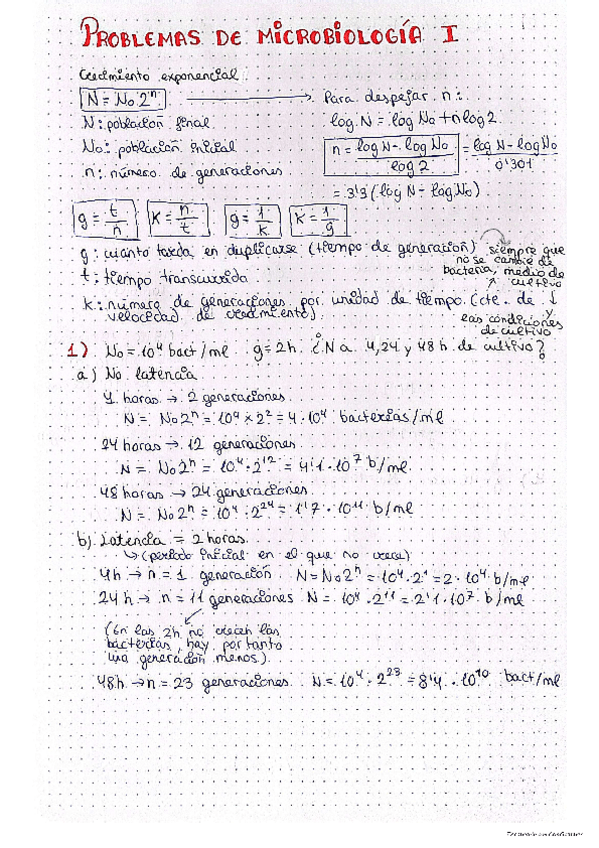 PROBLEMAS DE MICROBIOLOGÍA I
Crecimiento exponencial:
N = No 2ⁿ → Para despejar n:
N: población final
log N = log No + n log 2
No: población inicial
n = log N - log No / log 2 = log N - log No / 0'301
n: número de generaciones
= 3'3 (log N - log No)
g = t/n K = n/t g = 1/k k = 1/g
g: cuanto tarda en duplicarse (tiempo de generación)
siempre que
no se cambie de
bacteria, medio de
cultivo
y
las condiciones
de cultivo
t: tiempo transcurrido
k: número de generaciones por unidad de tiempo. (cte. de
velocidad de crecimiento).
1) No = 10⁴ bact/ml g = 2h. ¿N a 4, 24 y 48 h de cultivo?
a) No latencia
4 horas → 2 generaciones
N = No 2ⁿ = 10⁴ x 2² = 4 · 10⁴ bacterias/ml
24 horas → 12 generaciones
N = No 2ⁿ = 10⁴ · 2¹² = 4'1 · 10⁷ b/ml
48 horas → 24 generaciones
N = No 2ⁿ = 10⁴ · 2²⁴ = 1'7 · 10¹¹ b/ml
b) Latencia = 2 horas
↳ (período inicial en el que no crece)
4h → n = 1 generación N = No 2ⁿ = 10⁴ · 2¹ = 2 · 10⁴ b/ml
24 h → n = 11 generaciones N = 10⁴ · 2¹¹ = 2'1 · 10⁷ b/ml
(En las 2h no crecen las
bacterias, hay por tanto
una generación menos).
48h → n = 23 generaciones N = 10⁴ · 2²³ = 8'4 · 10¹⁰ bact/ml